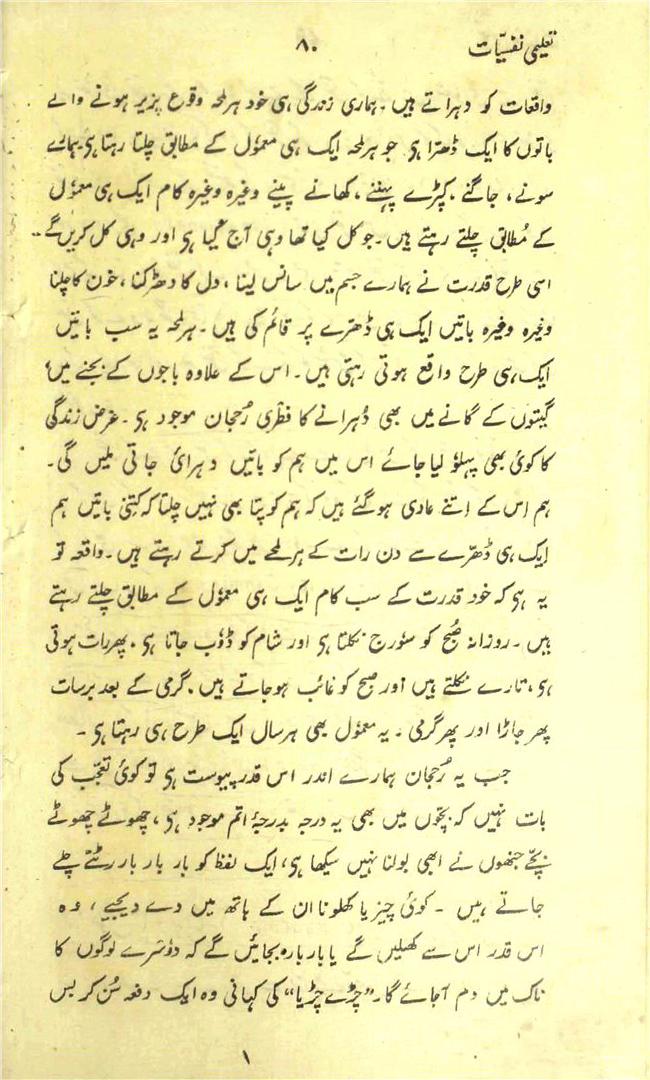 تعلیمی نفسیّات
۸۰
واقعات کو دہراتے ہیں ۔ ہماری زندگی ہی خود ہر لمحہ وقوع پزیر ہونے والے
باتوں کا ایک ڈھرّا ہی جو ہر لمحہ ایک ہی معمول کے مطابق چلتا رہتا ہی۔ ہمارے
سونے، جاگنے، کپڑے پہننے، کھانے پینے وغیرہ وغیرہ کام ایک ہی معمول
کے مُطابق چلتے رہتے ہیں۔ جو کل کیا تھا وہی آج کیا ہی اور وہی کل کریں گے۔
اسی طرح قدرت نے ہمارے جسم میں سانس لینا، دل کا دھڑکنا، خون کا چلنا
وغیرہ وغیرہ باتیں ایک ہی ڈھرّے پر قائم کی ہیں۔ ہر لمحہ یہ سب باتیں
ایک ہی طرح واقع ہوتی رہتی ہیں۔ اس کے علاوہ باجوں کے بجنے میں،
گیتوں کے گانے میں بھی دُہرانے کا فطری رُحجان موجود ہی۔ غرض زندگی
کا کوئی بھی پہلو لیا جائے اس میں ہم کو باتیں دہرائی جاتی ملیں گی۔
ہم اِس کے اِتنے عادی ہو گئے ہیں کہ ہم کو پتا بھی نہیں چلتا کہ کِتنی باتیں ہم
ایک ہی ڈھرّے سے دن رات کے ہر لمحے میں کرتے رہتے ہیں۔ واقعہ تو
یہ ہی کہ خود قدرت کے سب کام ایک ہی معمول کے مطابق چلتے رہتے
ہیں۔ روزانہ صُبح کو سورج نکلتا ہی اور شام کو ڈوب جاتا ہی۔ پھر رات ہوتی
ہی، تارے نکلتے ہیں اور صبح کو غائب ہو جاتے ہیں۔ گرمی کے بعد برسات
پھر جاڑا اور پھر گرمی۔ یہ معمول بھی ہر سال ایک طرح ہی رہتا ہی۔
جب یہ رُحجان ہمارے اندر اس قدر پیوست ہی تو کوئی تعجّب کی
بات نہیں کہ بچّوں میں بھی یہ درجہ بدرجۂ اتم موجود ہی، چھوٹے چھوٹے
بچّے جنھوں نے ابھی بولنا نہیں سیکھا ہی، ایک لفظ کو بار بار بار رٹتے چلے
جاتے ہیں ۔ کوئی چیز یا کھلونا ان کے ہاتھ میں دے دیجیے، وہ
اس قدر اس سے کھیلیں گے یا بار بار بجائیں گے کہ دوسرے لوگوں کا
ناک میں دم آجائے گا۔ ”چڑے چڑیا“ کی کہانی وہ ایک دفعہ سُن کر بس
۱